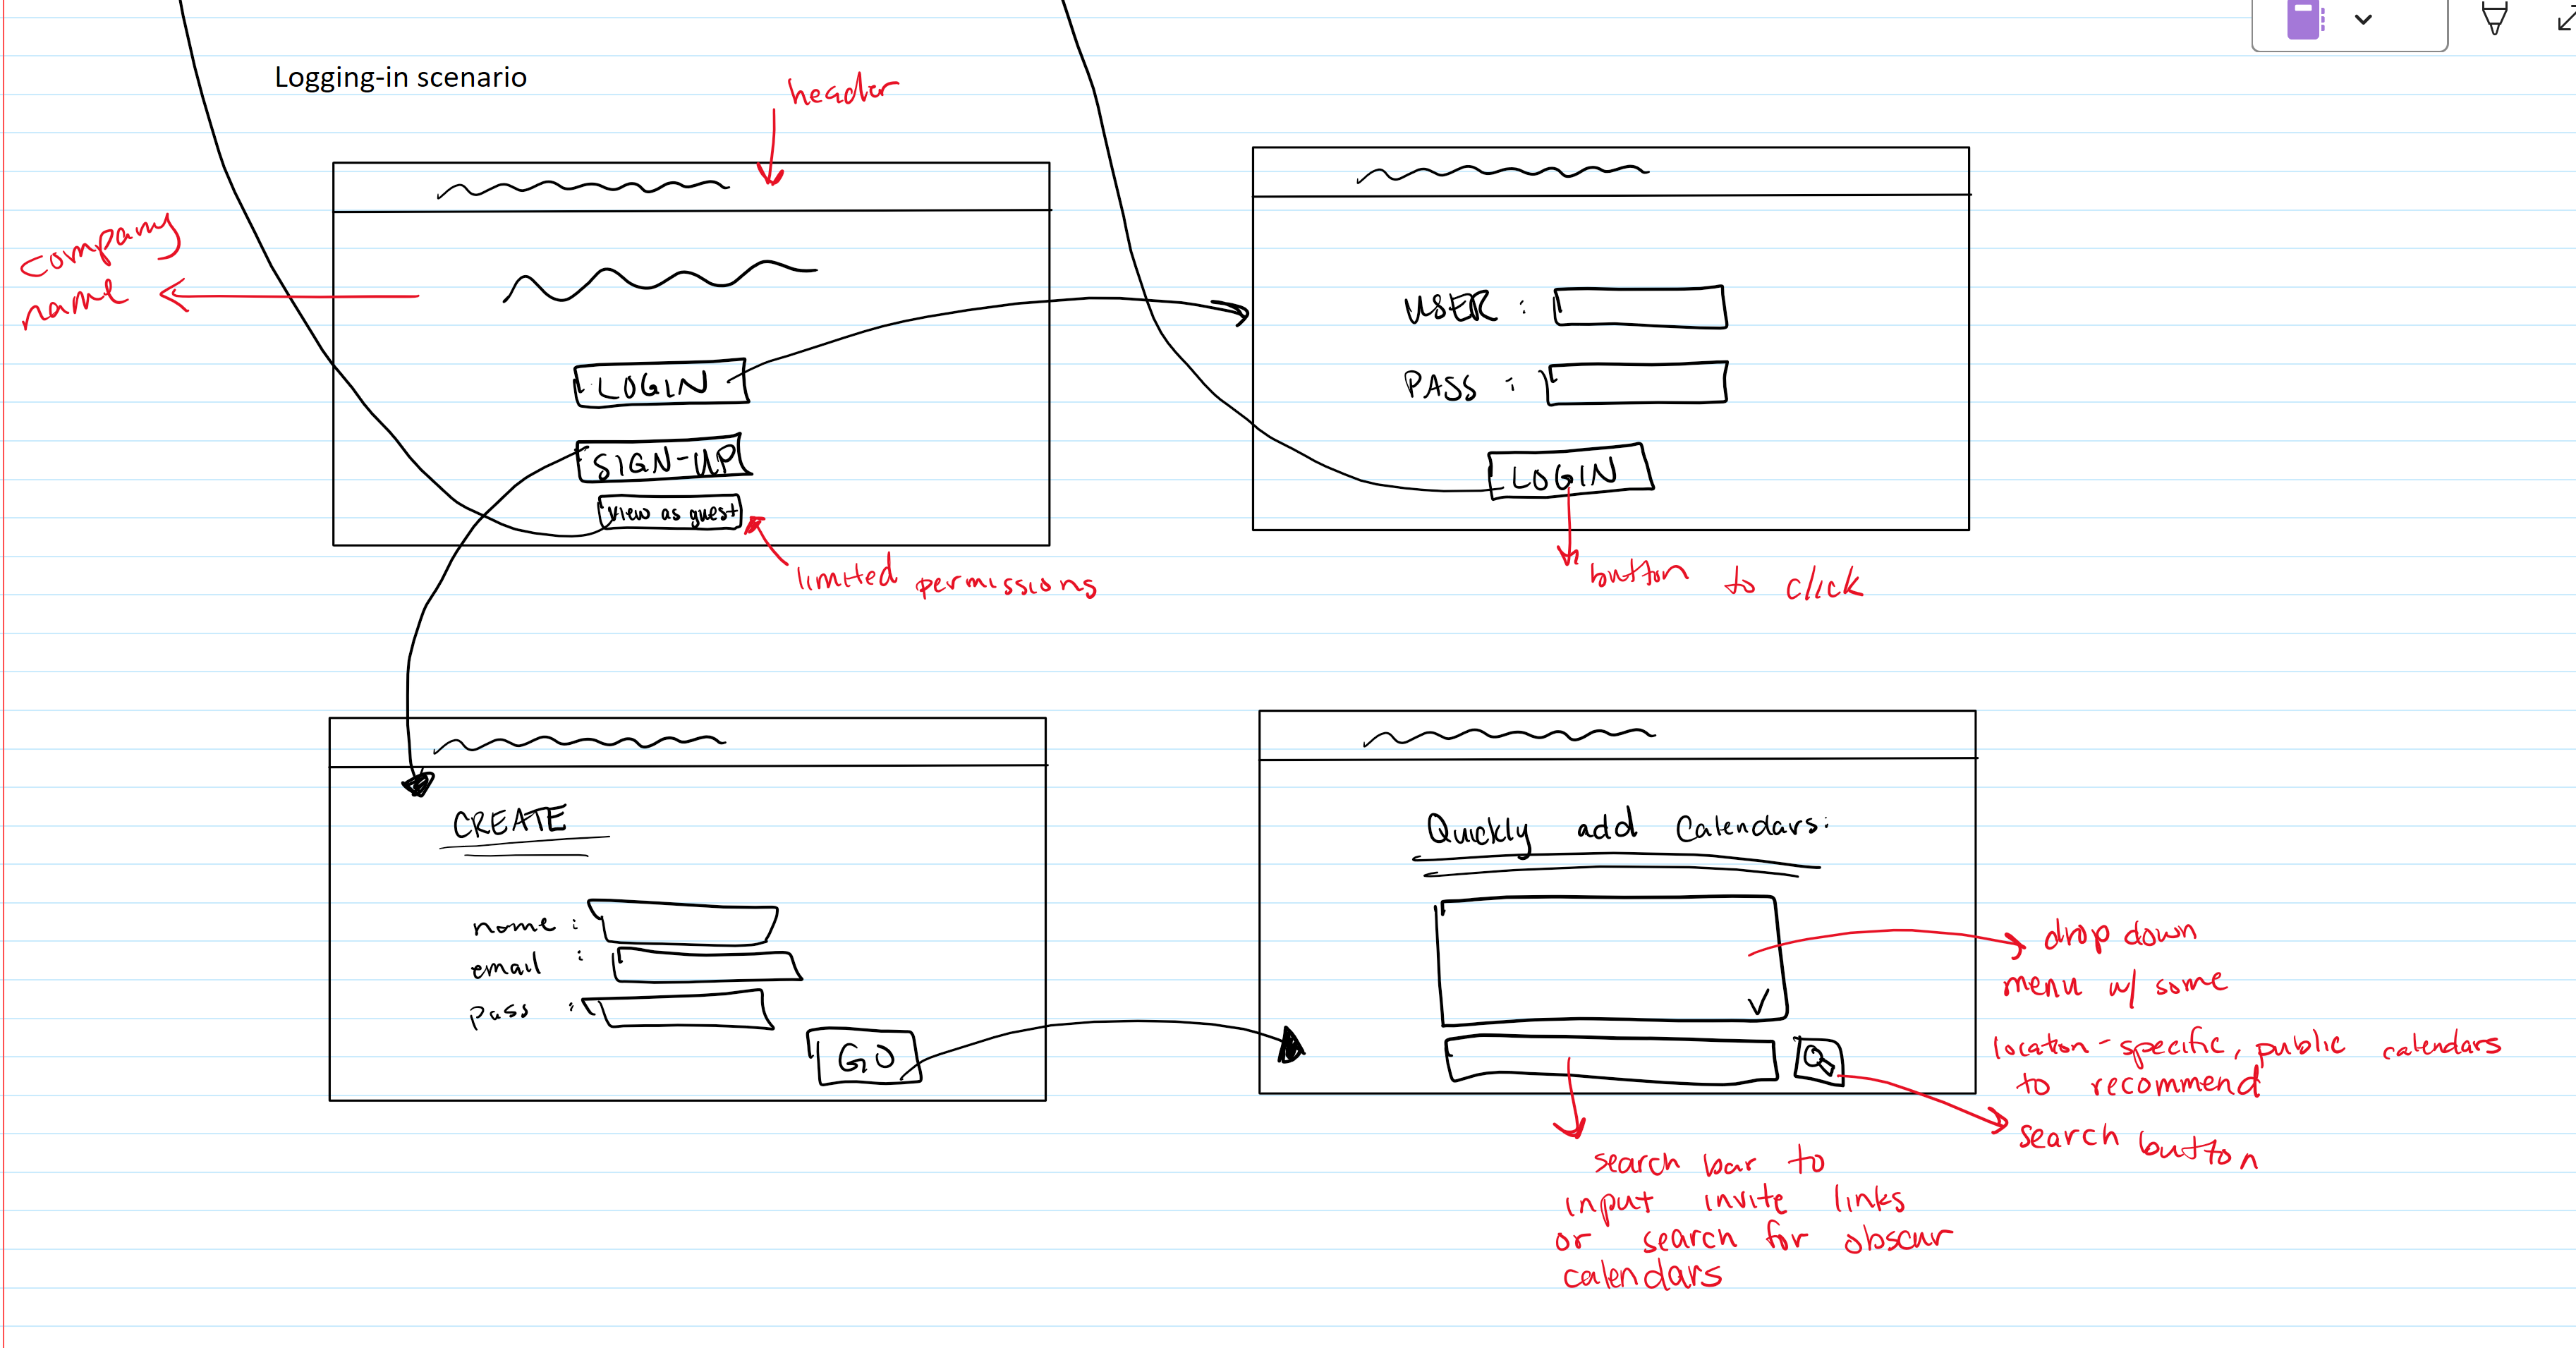 Logging-in scenario
header
company
name
LOGIN
SIGN-UP
view as guest
limited permissions
USER :
PASS :
LOGIN
button to click
CREATE
name :
email :
pass :
GO
Quickly add Calendars:
drop down
menu w/ some
location-specific, public calendars
to recommend
search button
search bar to
input invite links
or search for obscur
calendars